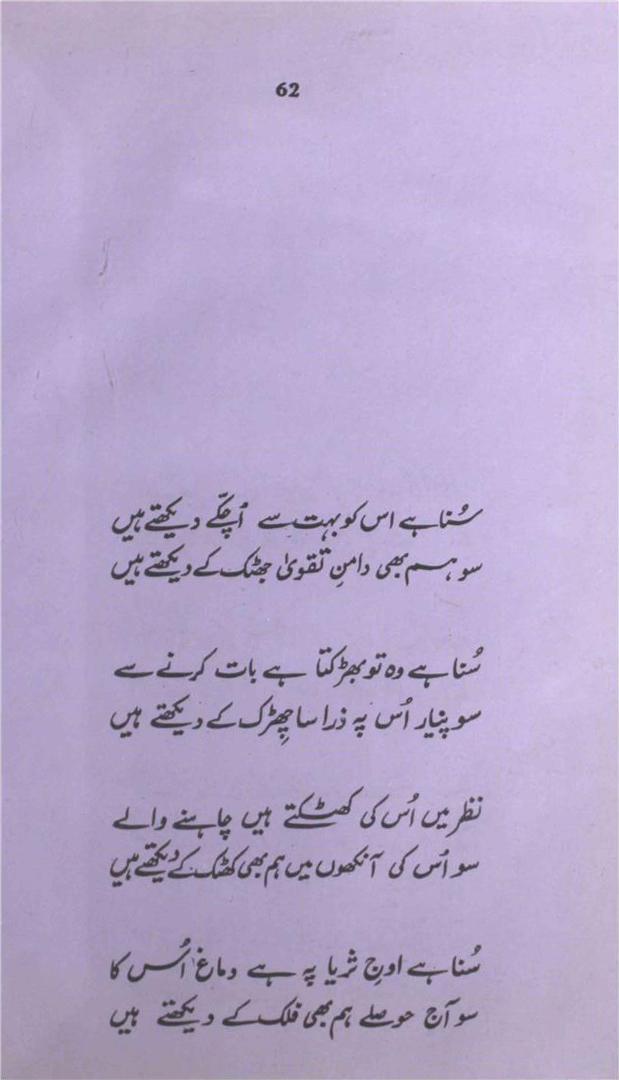 62
سُنا ہے اس کو بہت سے اُچکّے دیکھتے ہیں
سو ہم بھی دامنِ تقویٰ جھٹک کے دیکھتے ہیں
سُنا ہے وہ تو بھڑکتا ہے بات کرنے سے
سو پنیار اُس پہ ذرا سا چھِڑک کے دیکھتے ہیں
نظر میں اُس کی کھٹکتے ہیں چاہنے والے
سو اُس کی آنکھوں میں ہم بھی کھٹک کے دیکھتے ہیں
سُنا ہے اوجِ ثریا پہ ہے دماغ اُس کا
سو آج حوصلے ہم بھی فلک کے دیکھتے ہیں